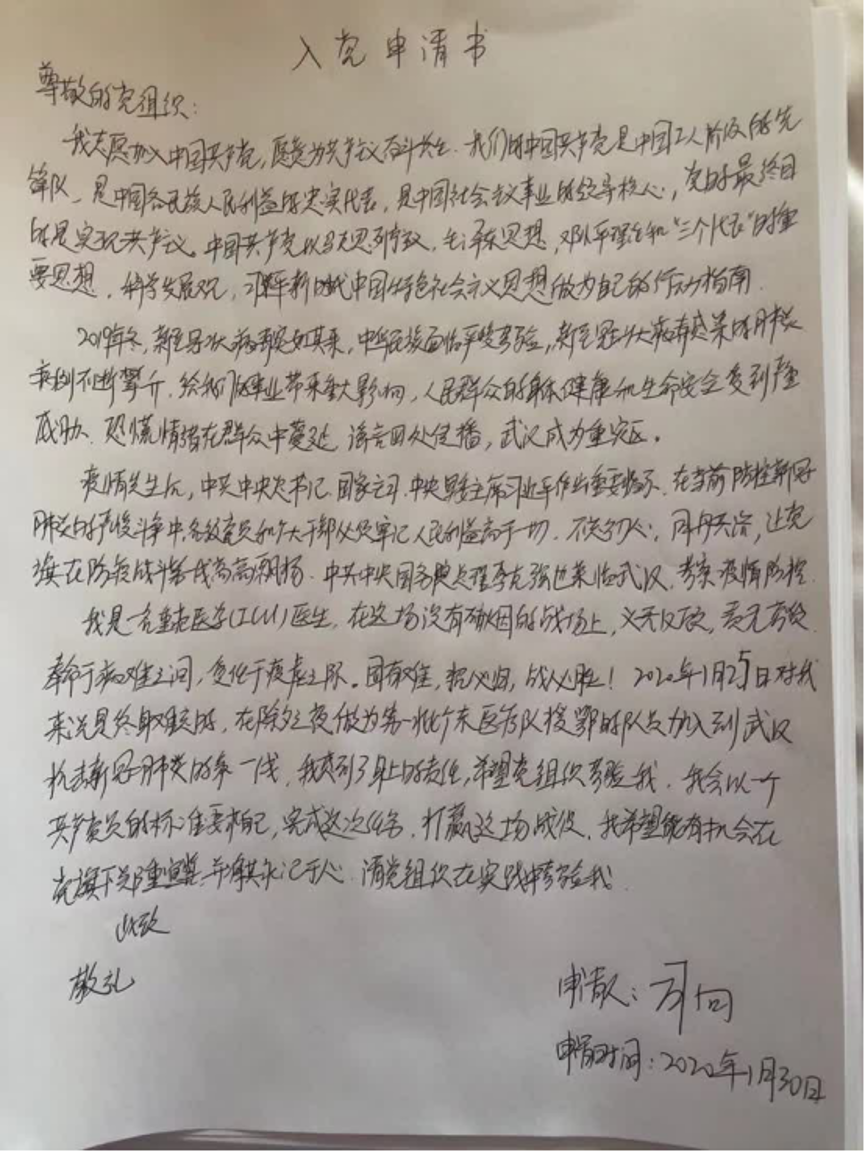 入党申请书
尊敬的党组织：
我志愿加入中国共产党，愿意为共产主义奋斗终生．我们的中国共产党是中国工人阶级的先
锋队，是中国各民族人民利益的忠实代表，是中国社会主义事业的领导核心，党的最终目
的是实现共产主义。中国共产党以马克思列宁主义，毛泽东思想，邓小平理论和“三个代表”的重
要思想，科学发展观，习近平新时代中国特色社会主义思想做为自己的行动指南．
2019年冬，新型冠状病毒突如其来，中华民族面临严峻考验，新型冠状病毒感染的肺炎
病例不断攀升，给我们的事业带来重大影响，人民群众的身体健康和生命安全受到严重
威胁．恐慌情绪在群众中蔓延，谣言四处传播，武汉成为重灾区。
疫情发生后，中共中央总书记、国家主席、中央军委主席习近平作出重要指示．在当前防控新冠
肺炎的严峻斗争中，各级党员和广大干部必须牢记人民利益高于一切．不忘初心，同舟共济，让党
旗在防疫战斗第一线高高飘扬．中共中央国务院总理李克强也来临武汉，考察疫情防控．
我是一名重症医学（ICU）医生，在这场没有硝烟的战场上，义无反顾，
奉命于病难之间，受任于疫虐之际。国有难，召必归，战必胜！2020年1月25日对我
来说是终身难忘的，在除夕之夜做为第一批广东医疗队援鄂的队员加入到武汉
抗击新冠肺炎的第一线，我感到了身上的责任，希望党组织考验我．我会以一个
共产党员的标准要求自己，完成这次任务．打赢这场战役．我希望能有机会在
党旗下郑重宣誓，并将其永记于心．请党组织在实践中考验我．
此致
敬礼
申请人：司向
申请时间：2020年1月30日